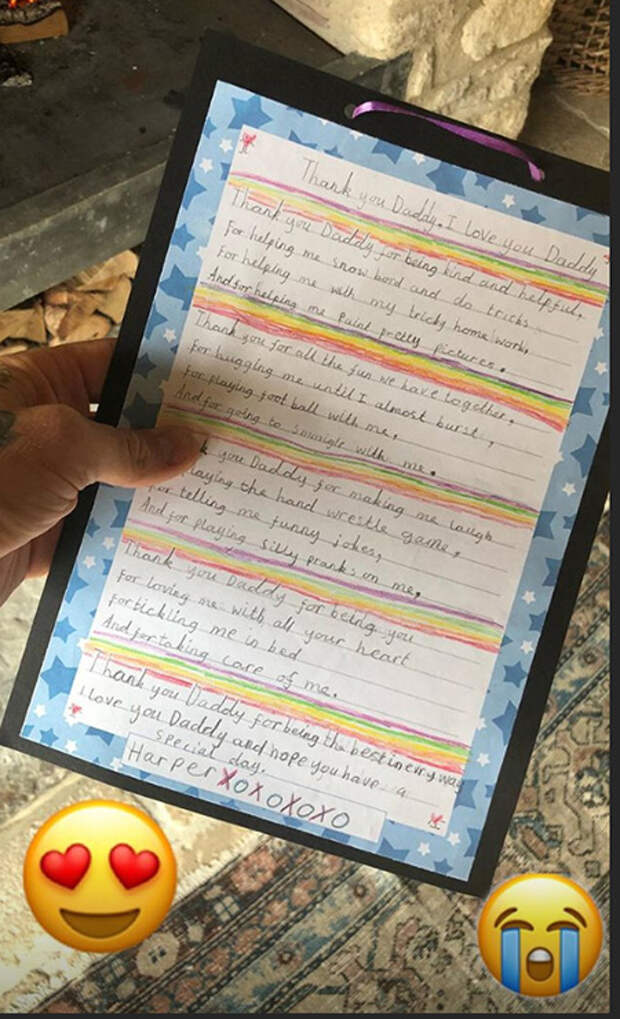 Thank you Daddy, I love you Daddy
Thank you Daddy for being kind and helpful,
For helping me snow bord and do tricks
For helping me with my tricky home work,
And for helping me Paint pretty pictures.
Thank you for all the fun we have together,
For hugging me until I almost burst,
For playing foot ball with me,
And for going to snuggle with me.
you Daddy for making me laugh
laying the hand wrestle game,
telling me funny jokes,
And for playing silly pranks on me,
Thank you Daddy for being you
For loving me with all your heart
For tickling me in bed
And for taking care of me.
Thank you Daddy for being the best in evry way
I Love you Daddy and hope you have a
special day.
Harper XOXOXOXO